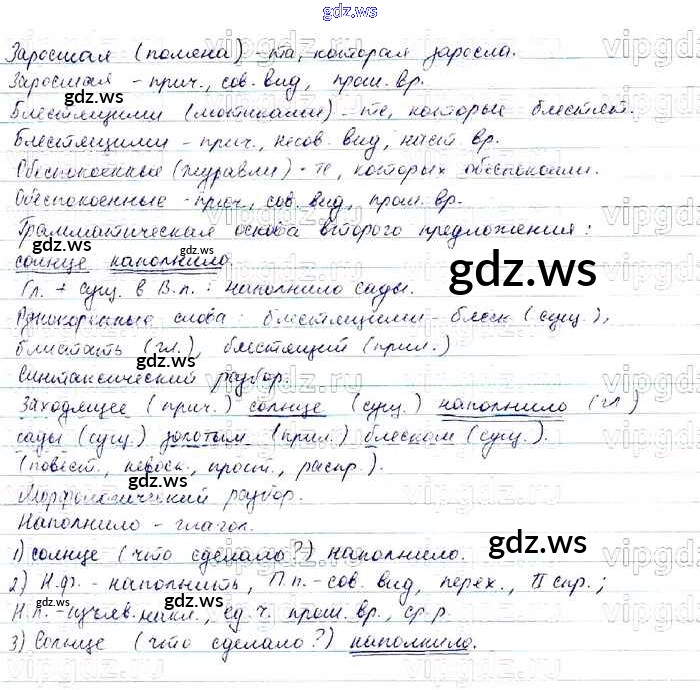 gdz.ws
Заросшая (поляна) - та, которая заросла.
Заросшая - прич., сов. вид, прош. вр.
Блестящими (мотиками) - те, которые блестят.
Блестящими - прич., несов. вид, наст. вр.
Обеспокоенные (журавли) - те, которых обеспокоили.
Обеспокоенные - прич., сов. вид, прош. вр.
Грамматическая основа второго предложения:
солнце наполнило.
Гл. + сущ. в В.п.: наполнило сады.
Однокоренные слова: блестящими - блеск (сущ.),
блистать (гл.), блестящий (прил.)
Синтаксический разбор.
Заходящее (прич.) солнце (сущ.) наполнило (гл.)
сады (сущ.) золотым (прил.) блеском (сущ.).
(повест., невоск., прост., распр.).
Морфологический разбор.
Наполнило - глагол.
1) солнце (что сделало?) наполнило.
2) Н.ф. - наполнить, П.п. - сов. вид, перех., II спр.;
Н.п. - изъяв. накл., ед. ч. прош. вр., ср. р.
3) Солнце (что сделало?) наполнило.